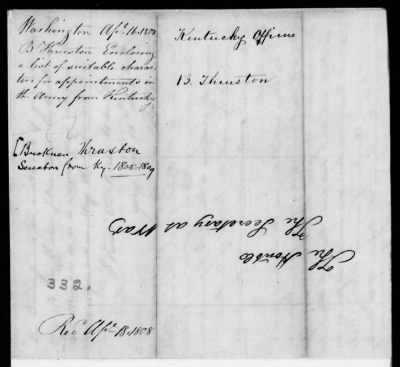 Washington Apl. 16. 1808
B Thruston Enclosing
a list of suitable charac
ters for appointments in
the Army from Kentucky
[Buckner Thruston
Senator from Ky. 1805-1809
332.
Recd Apl. 18. 1808
Kentucky Officers
B. Thruston
The Honble
The Secretary at War